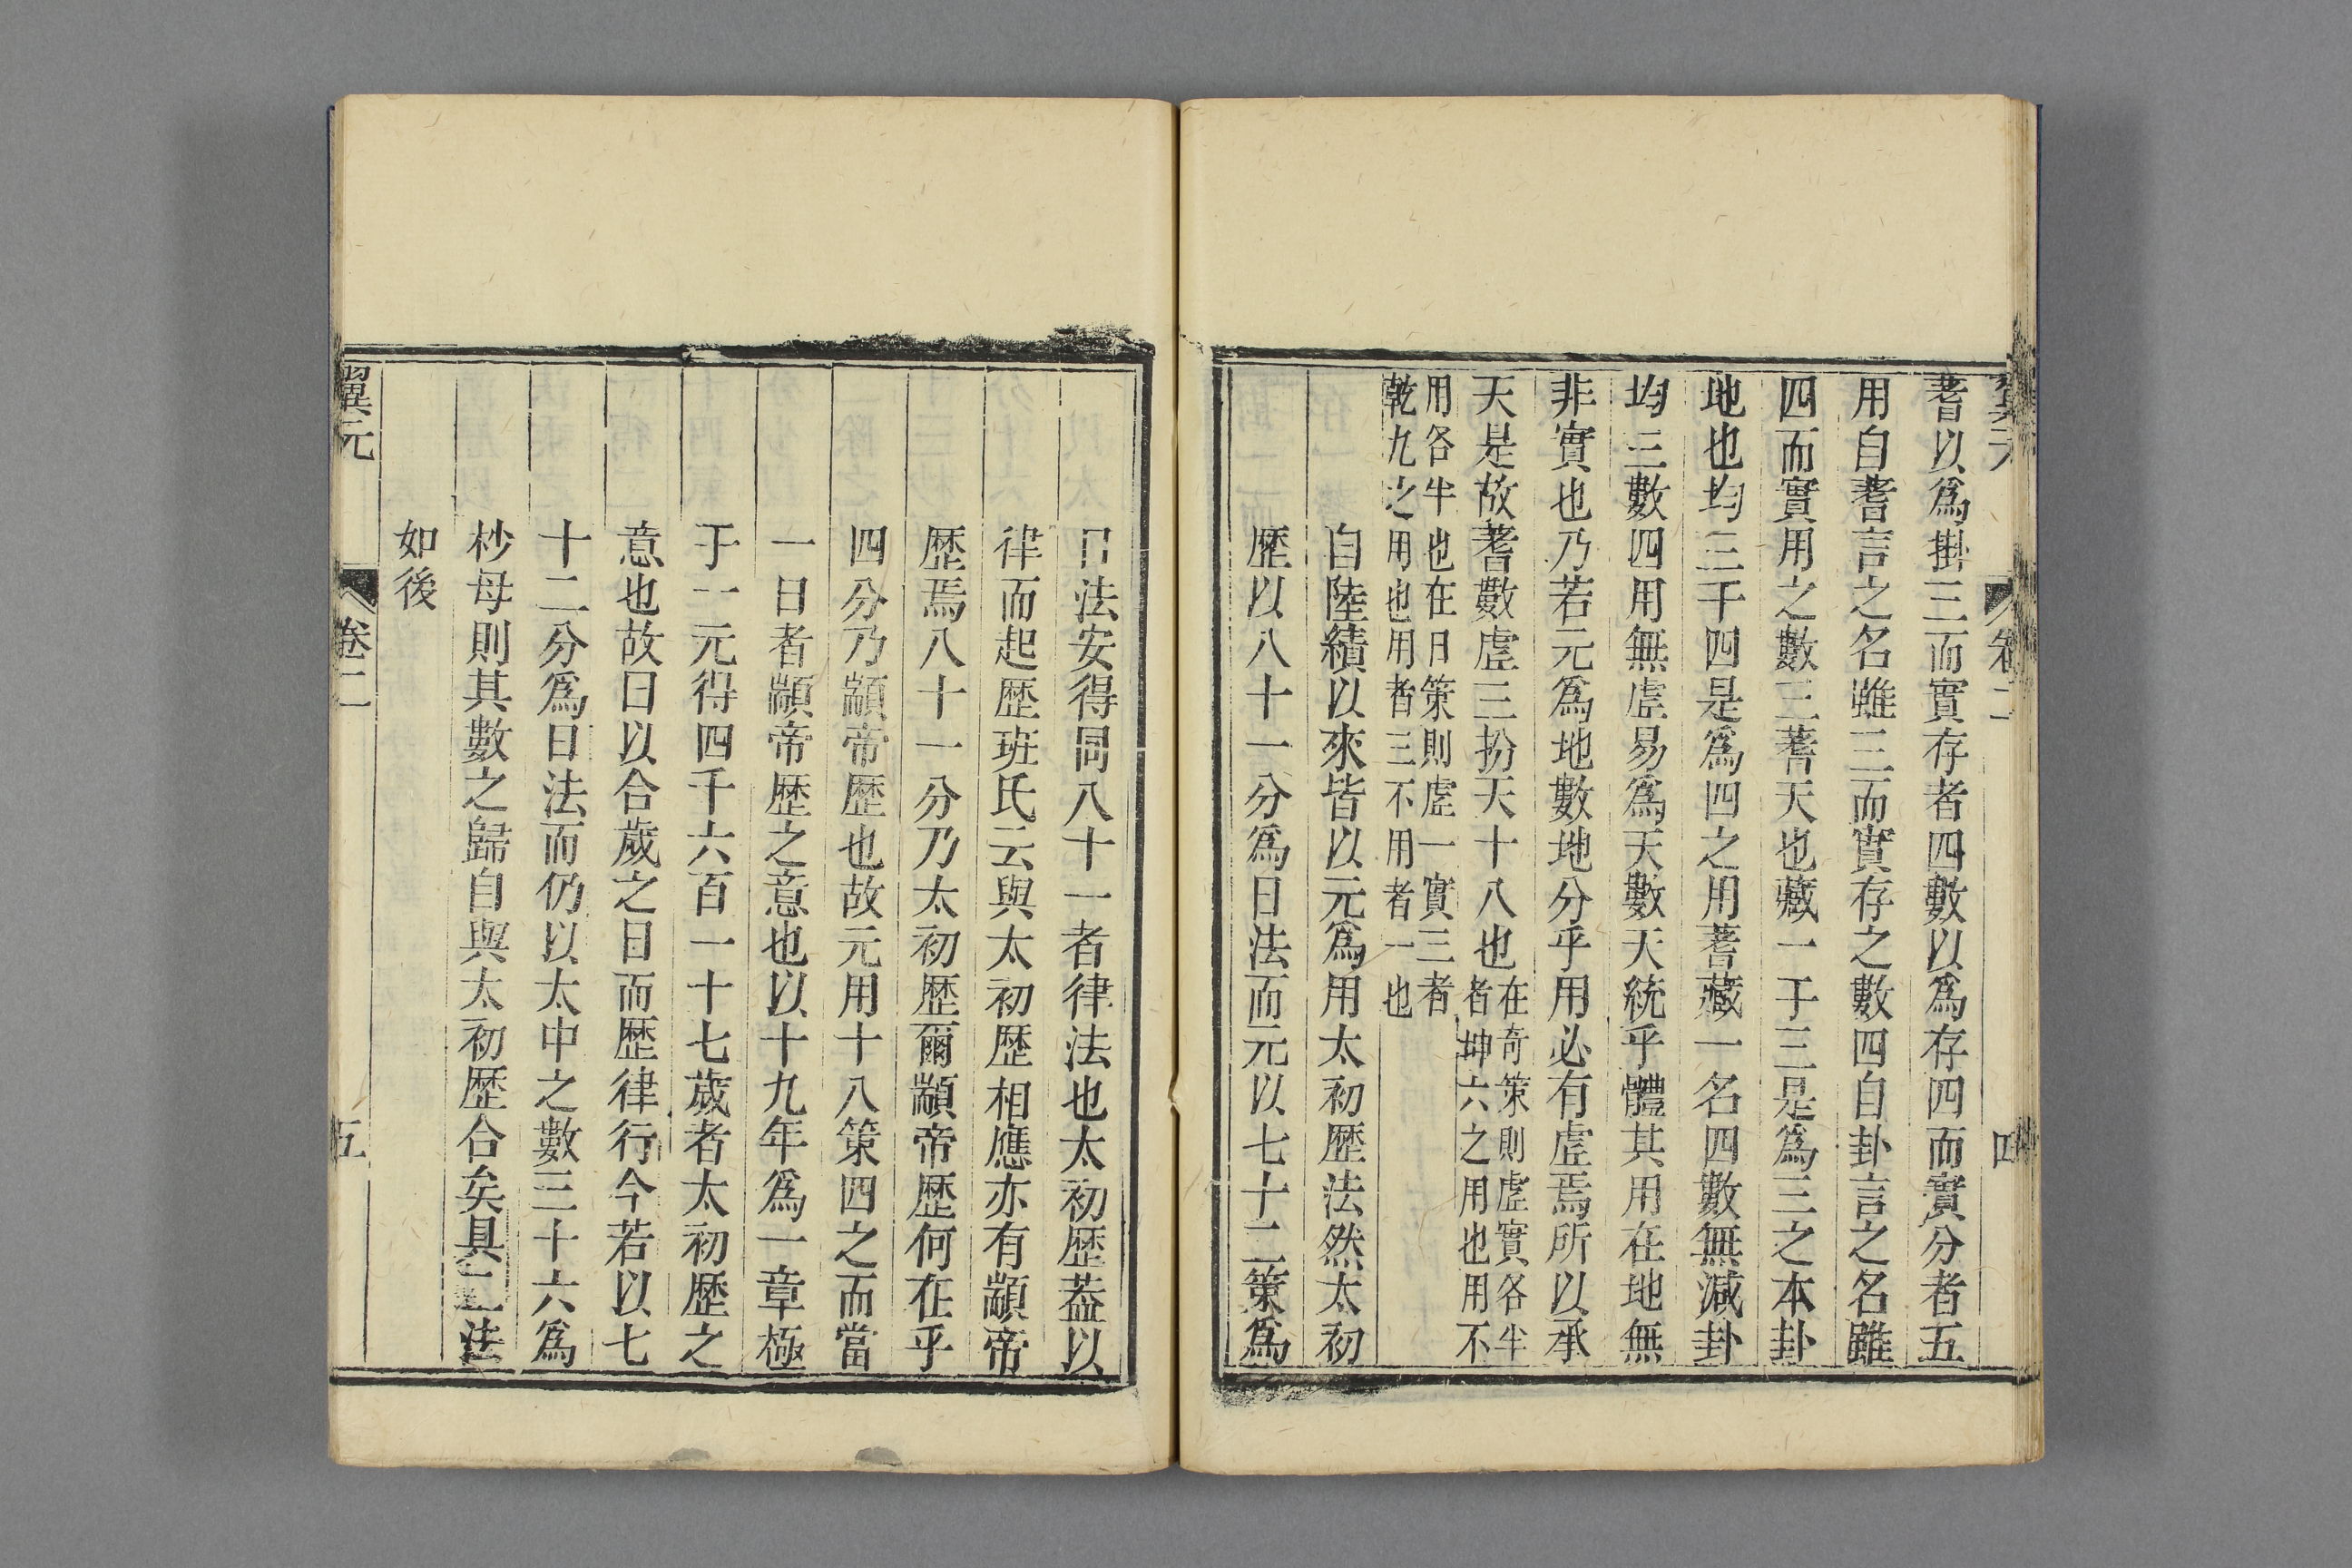 翼元
卷二
四
蓍以爲掛三而實存者四數以爲存四而實分者五
用自蓍言之名雖三而實存之數四自卦言之名雖
四而實用之數三蓍天也藏一于三是爲三之本卦
地也均三于四是爲四之用蓍藏一名四數無減卦
均三數四用無虛易爲天數天統乎體其用在地無
非實也乃若元爲地數地分乎用必有虛焉所以承
天是故蓍數虛三扮天十八也在奇策則虛實各半
者坤六之用也用不
用各半也在日策則虛一實三者
乾九之用也用者三不用者一也
自陸績以來皆以元爲用太初歷法然太初
歷以八十一分爲日法而元以七十二策爲
日法安得同八十一者律法也太初歷葢以
律而起歷班氏云與太初歷相應亦有顓帝
歷焉八十一分乃太初歷爾顓帝歷何在乎
四分乃顓帝歷也故元用十八策四之而當
一日者顓帝歷之意也以十九年爲一章極
于一元得四千六百一十七歲者太初歷之
意也故曰以合歲之日而歷律行今若以七
十二分爲日法而仍以太中之數三十六爲
杪母則其數之歸自與太初歷合矣具二法
如後
翼元
卷二
五